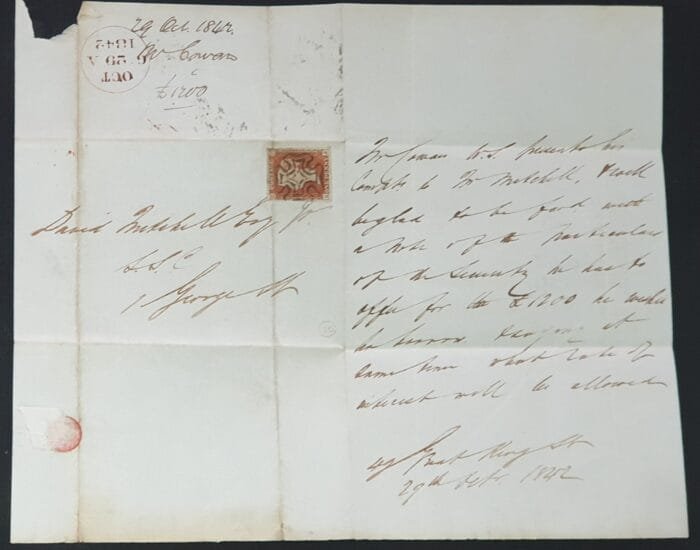 29 Oct. 1842.
Mr Cowan
£1200
OCT
29 A
1842
David Mitchell Esq
S.S.C.
1 George St
Mr Cowan W.S. presents his
Compts to Mr Mitchell, & will
be glad to be furd with
a note of the particulars
of the Security he has to
offer for the £1200 he wishes
to borrow at
same time what rate of
interest will be allowed
49 Great King St
29th Octr. 1842